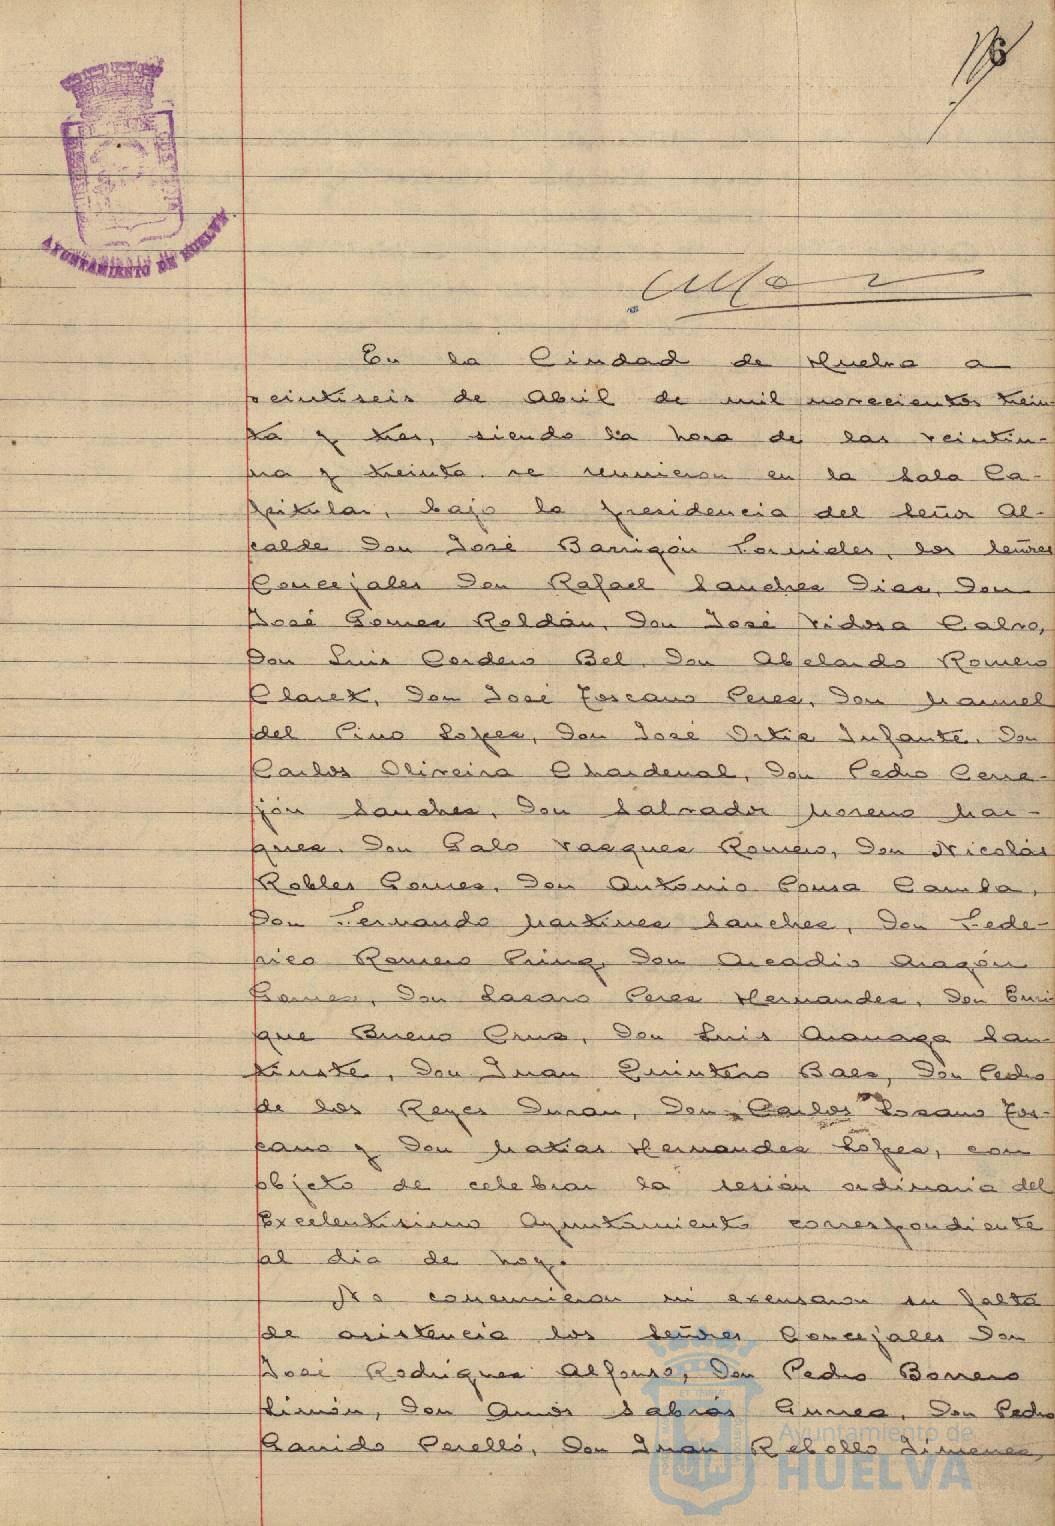 AYUNTAMIENTO DE HUELVA
En la Ciudad de Huelva a
veintiseis de Abril de mil novecientos trein
ta y tres, siendo la hora de las veintiu-
na y treinta se reunieron en la Sala Ca-
pitular, bajo la presidencia del Señor Al-
calde Don José Barrigón Fornieles, los Señores
Concejales Don Rafael Sanchez Diaz, Don
José Gomez Roldán, Don José Vidosa Calvo,
Don Luis Cordero Bel, Don Abelardo Romero
Claret, Don José Toscano Perez, Don Manuel
del Pino Lopez, Don José Ortiz Infante, Don
Carlos Oliveira Chardenal, Don Pedro Cerre-
jón Sanchez, Don Salvador Moreno Mar-
quez, Don Galo Vazquez Romero, Don Nicolás
Robles Gomez, Don Antonio Pousa Camba,
Don Fernando Martinez Sanchez, Don Fede-
rico Romero Don Arcadio Aragón
Gomez, Don Lazaro Perez Hernandez, Don Enri
que Bueno Cruz, Don Luis San
Don Juan Quintero Baez, Don Pedro
de los Reyes Duran, Don Carlos Lozano Tos-
cano y Don Matias Hernandez Lopez, con
objeto de celebrar la sesión ordinaria del
Excelentisimo Ayuntamiento correspondiente
al dia de hoy.
No concurrieron ni excusaron su falta
de asistencia los Señores Concejales Don
José Rodriguez Alfonso, Don Pedro Borrero
Limón, Don Amós Sabrás Gurrea, Don Pedro
Garrido Perelló, Don Juan Rebollo Jimenez,
Ayuntamiento de
HUELVA